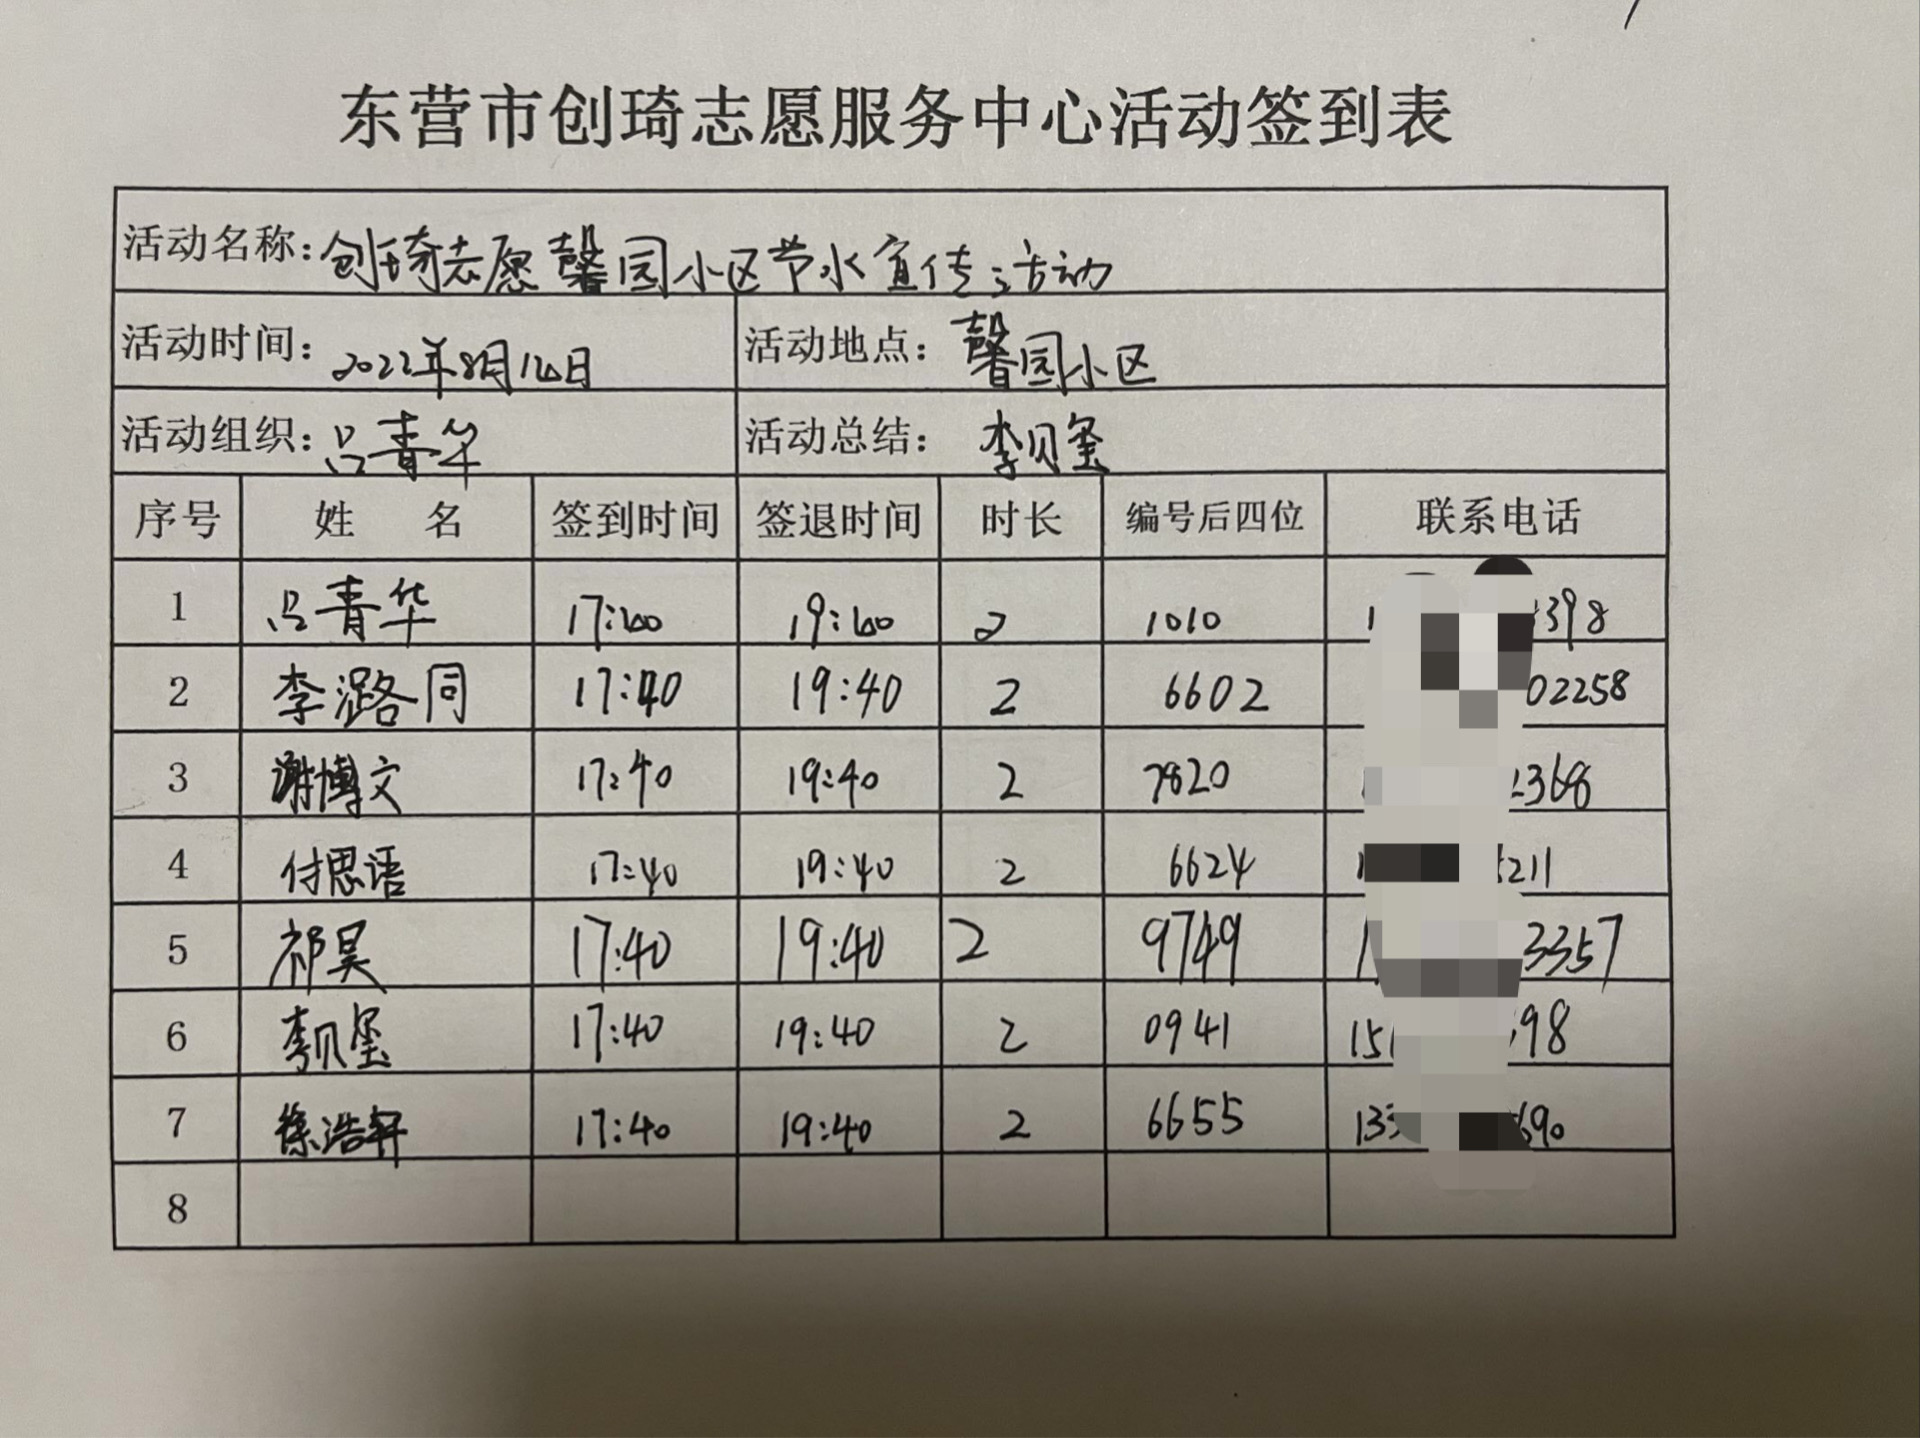 东营市创琦志愿服务中心活动签到表
活动名称：创琦志愿馨园小区节水宣传活动
活动时间：2022年8月12日 活动地点：馨园小区
活动组织：吕青华 活动总结：李贝玺
序号 姓 名 签到时间 签退时间 时长 编号后四位 联系电话
1 吕青华 17:40 19:40 2 1010 1 398
2 李潞同 17:40 19:40 2 6602 02258
3 谢博文 17:40 19:40 2 7820 1 2368
4 付思语 17:40 19:40 2 6624 1 5211
5 祁昊 17:40 19:40 2 9749 1 3357
6 李贝玺 17:40 19:40 2 0941 151 98
7 徐浩轩 17:40 19:40 2 6655 133 690
8